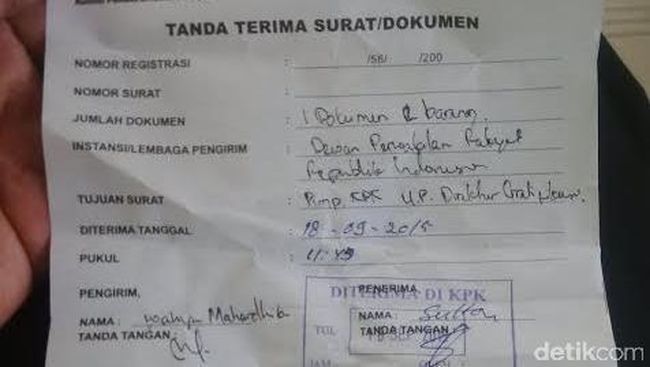 TANDA TERIMA SURAT/DOKUMEN
NOMOR REGISTRASI : /56/ /200
NOMOR SURAT :
JUMLAH DOKUMEN : 1 Dokumen & barang.
INSTANSI/LEMBAGA PENGIRIM : Dewan Perwakilan Rakyat
Republik Indonesia
TUJUAN SURAT : Pimp. KPK U.P. Direktur Gratifikasi
DITERIMA TANGGAL : 18-09-2015
PUKUL : 11:45
PENGIRIM, PENERIMA,
DITERIMA DI KPK
NAMA : Wahyu Mahardhika NAMA :
TANDA TANGAN : TANDA TANGAN
TGL
JAM
detikcom